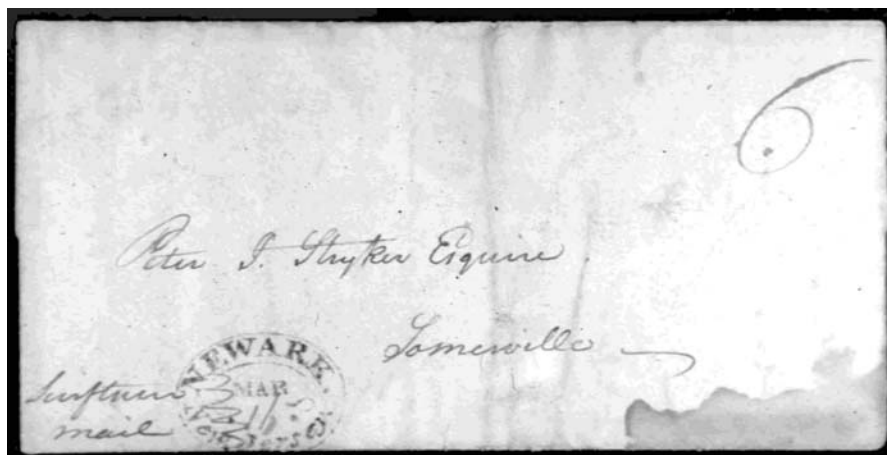 6
Peter I. Stryker Esquire.
Somerville
NEWARK.
MAR
mail